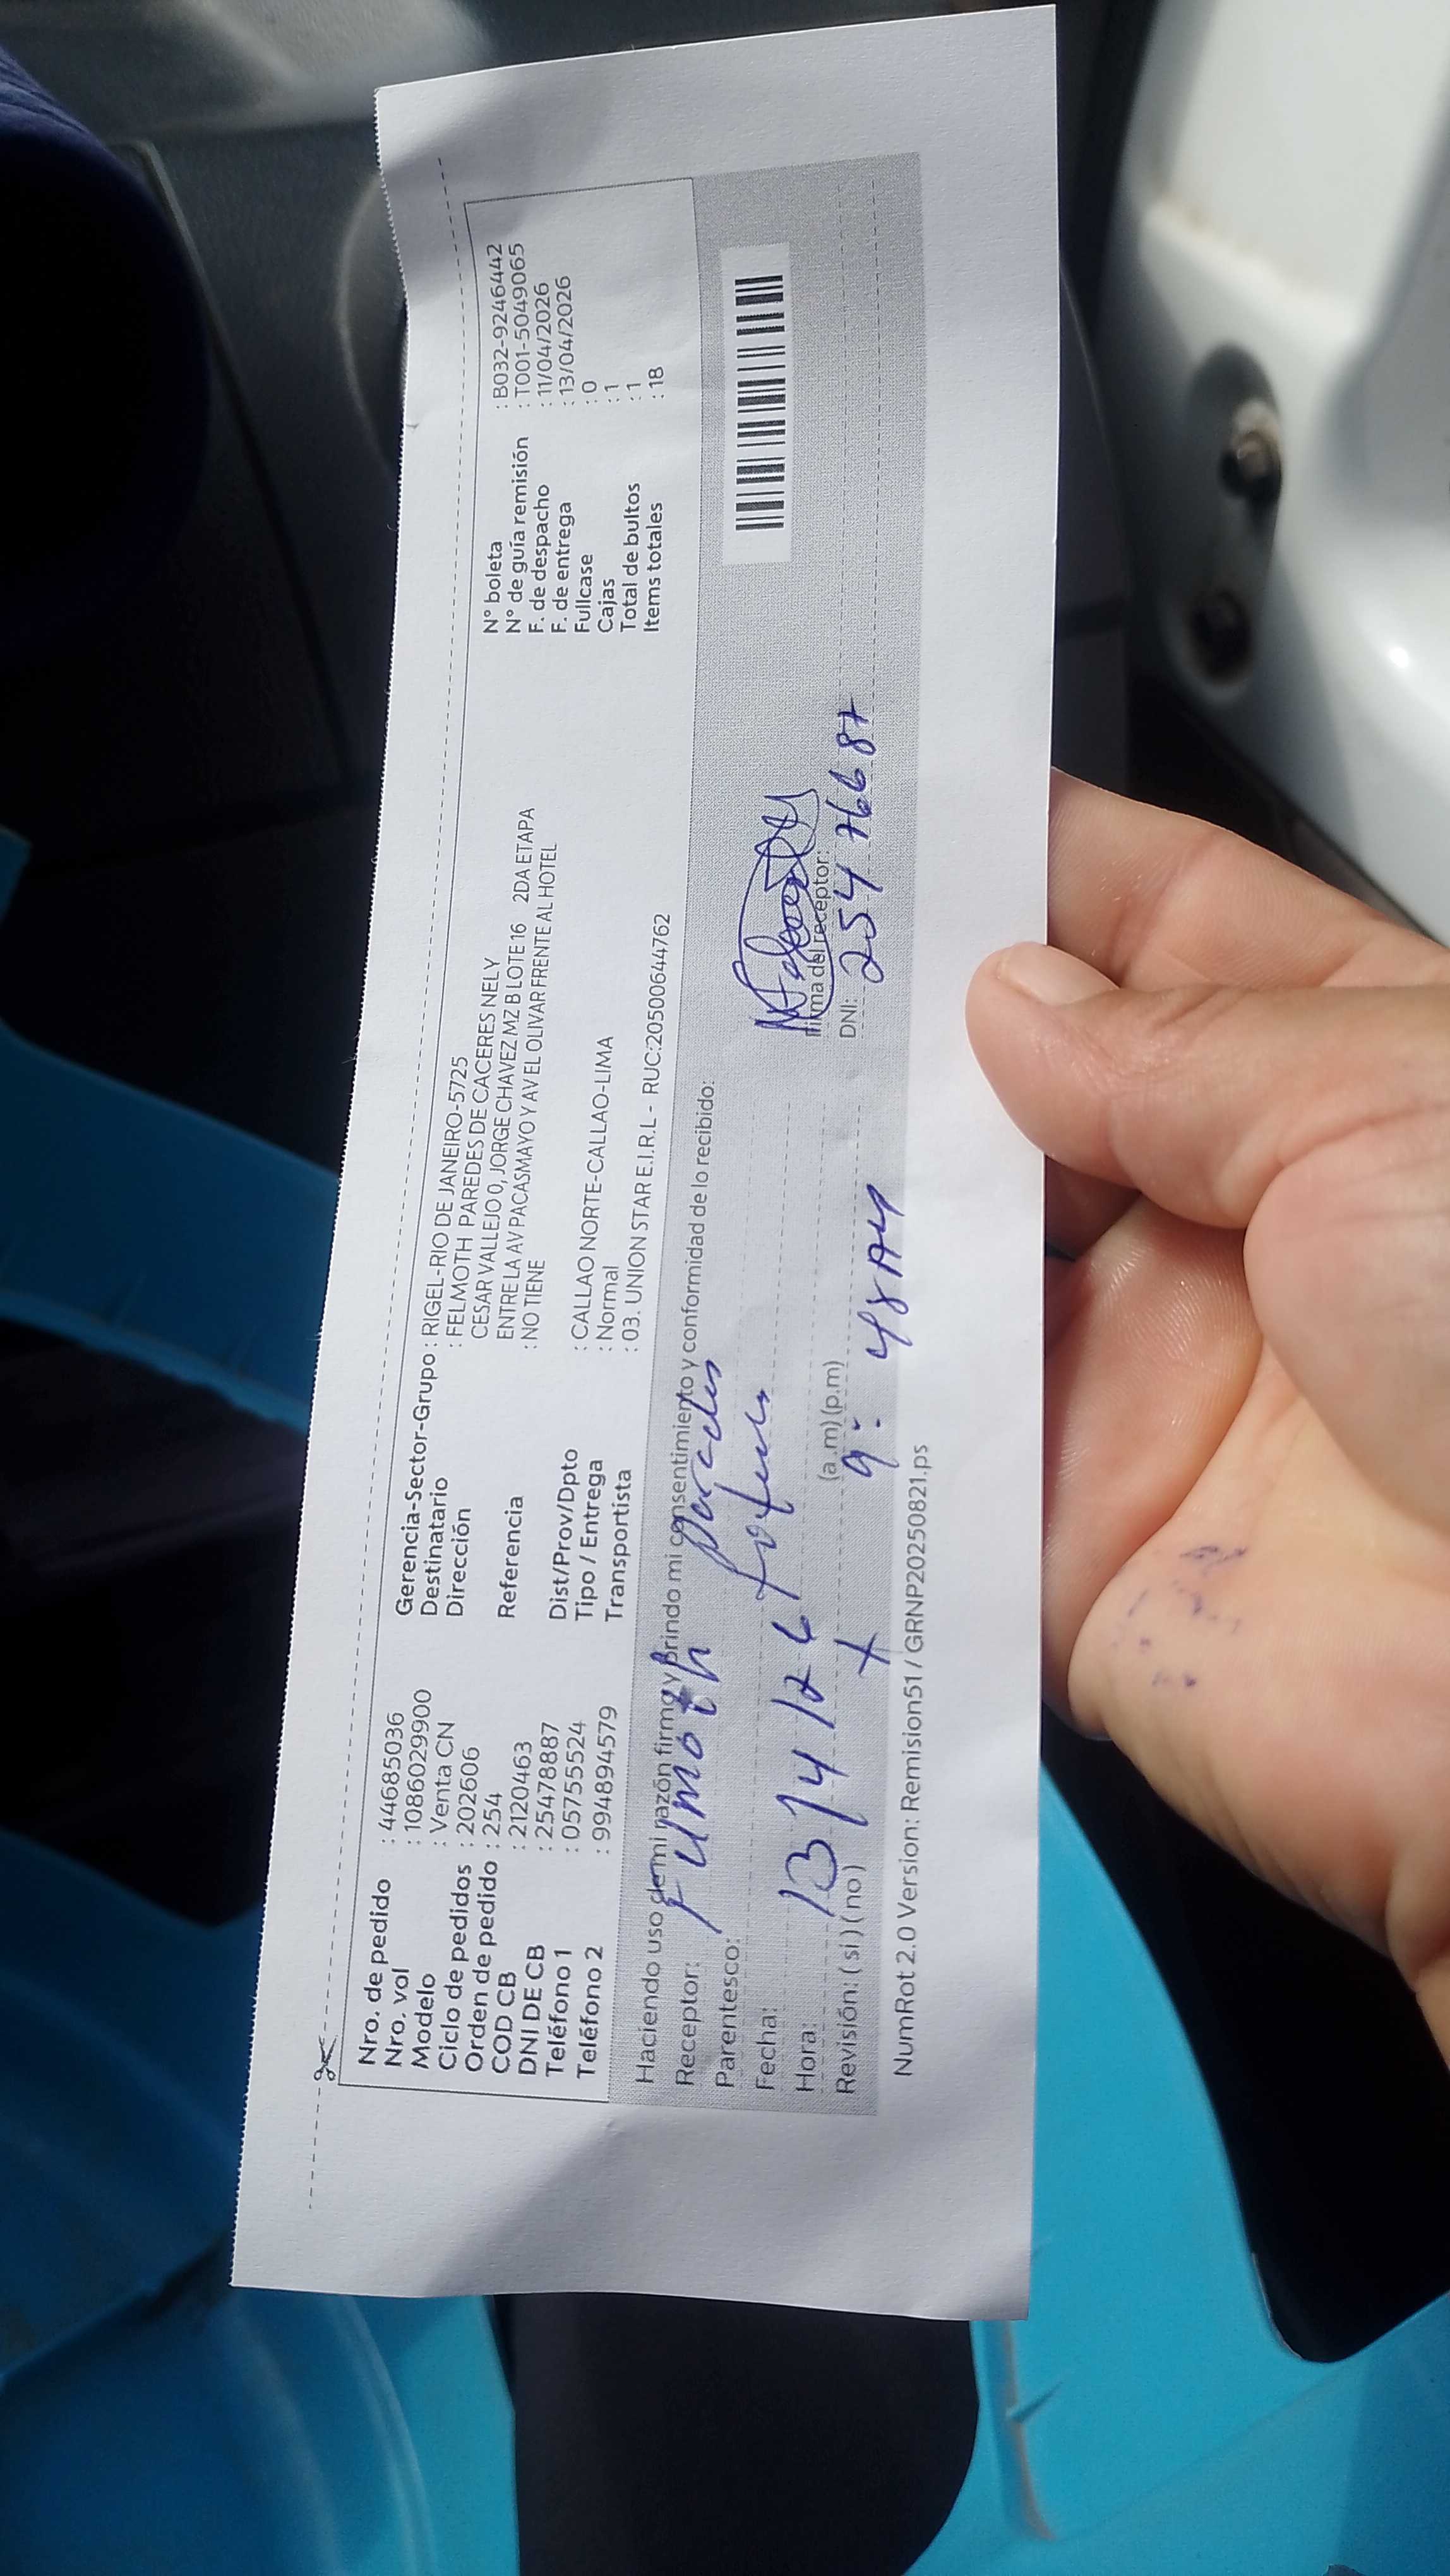 Nro. de pedido : 44685036
Nro. vol : 1086029900
Modelo : Venta CN
Ciclo de pedidos : 202606
Orden de pedido : 254
COD CB : 2120463
DNI DE CB : 25478887
Teléfono 1 : 05755524
Teléfono 2 : 994894579
Gerencia-Sector-Grupo : RIGEL-RIO DE JANEIRO-5725
Destinatario : FELMOTH PAREDES DE CACERES NELY
Dirección CESAR VALLEJO 0, JORGE CHAVEZ MZ B LOTE 16 2DA ETAPA
ENTRE LA AV PACASMAYO Y AV EL OLIVAR FRENTE AL HOTEL
Referencia : NO TIENE
Dist/Prov/Dpto : CALLAO NORTE-CALLAO-LIMA
Tipo / Entrega : Normal
Transportista : 03. UNION STAR E.I.R.L - RUC:20500644762
N° boleta : B032-9246442
N° de guía remisión : T001-5049065
F. de despacho : 11/04/2026
F. de entrega : 13/04/2026
Fullcase : 0
Cajas : 1
Total de bultos : 1
Items totales : 18
Haciendo uso de mi razón firmo y brindo mi consentimiento y conformidad de lo recibido:
Receptor: Felmoth Paredes
Parentesco:
Fecha: 13/4/26
Hora: (a.m) (p.m) 9:48 AM
Revisión: ( si ) ( no ) X
Firma del receptor:
DNI: 25476687
NumRot 2.0 Version: Remision51 / GRNP20250821.ps